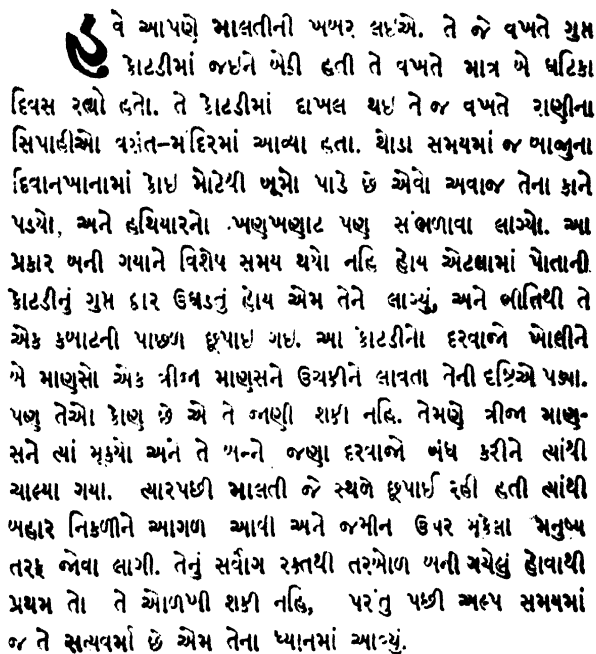 હવે આપણે માલતીની ખબર લઇએ. તે જે વખતે ગુપ્ત
કોટડીમાં જઇને બેઠી હતી તે વખતે માત્ર બે ઘટિકા
દિવસ રહ્યો હતો. તે કોટડીમાં દાખલ થઇ તે જ વખતે રાણીના
સિપાહીઓ વસંત-મંદિરમાં આવ્યા હતા. થોડા સમયમાં જ બાજુના
દિવાનખાનામાં કોઇ મોટેથી બૂમો પાડે છે એવો અવાજ તેના કાને
પડ્યો, અને હથિયારનો ખણખણાટ પણ સંભળાવા લાગ્યો. આ
પ્રકાર બની ગયાને વિશેષ સમય થયો નહિ હોય એટલામાં પોતાની
કોટડીનું ગુપ્ત દ્વાર ઉઘડતું હોય એમ તેને લાગ્યું, અને ભીતિથી તે
એક કબાટની પાછળ છૂપાઇ ગઇ. આ કોટડીનો દરવાજો ખોલીને
બે માણસો એક ત્રીજા માણસને ઉચકીને લાવતા તેની દૃષ્ટિએ પડ્યા.
પણ તેઓ કોણ છે એ તે જાણી શકી નહિ. તેમણે ત્રીજા માણ-
સને ત્યાં મૂક્યો અને તે બન્ને જણા દરવાજો બંધ કરીને ત્યાંથી
ચાલ્યા ગયા. ત્યારપછી માલતી જે સ્થળે છૂપાઈ રહી હતી ત્યાંથી
બહાર નિકળીને આગળ આવી અને જમીન ઉપર મૂકેલા મનુષ્ય
તરફ જોવા લાગી. તેનું સર્વાંગ રક્તથી તરબોળ બની ગયેલું હોવાથી
પ્રથમ તો તે ઓળખી શકી નહિ, પરંતુ પછી અલ્પ સમયમાં
જ તે સત્યવર્મા છે એમ તેના ધ્યાનમાં આવ્યું.